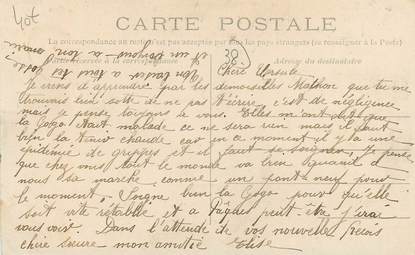 Lot
38.
CARTE POSTALE
La correspondance au recto n'est pas acceptée par tous les pays étrangers (se renseigner à la Poste)
Partie réservée à la correspondance Adresse du destinataire
Chère Ursule
Je viens d'apprendre par les demoiselles Mathon que tu me
trouvais bien sotte de ne pas t'écrire, c'est de négligence
mais je pense toujours à vous. Elles m'ont dit que
la Gogo était malade ce ne sera rien mais il faut
bien la tenir chaude car en ce moment il y a une
épidémie de grippe et il faut se soigner. Je pense
que chez moi tout le monde va bien quand à
nous sa marche comme un pont neuf pour
le moment. Soigne bien la Gogo pour qu'elle
soit vite rétablie et à Pâques peut-être j'irai
vous voir. Dans l'attente de vos nouvelles reçois
chère mon amitié Élise